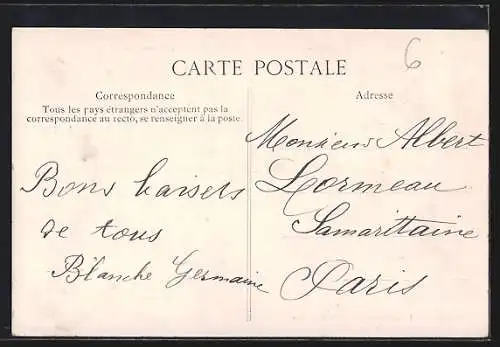 6
CARTE POSTALE
Correspondance
Tous les pays étrangers n'acceptent pas la
correspondance au recto, se renseigner à la poste.
Adresse
Bons baisers
de tous
Blanche Germaine
Monsieur Albert
Lormeau
Samarittaine
Paris